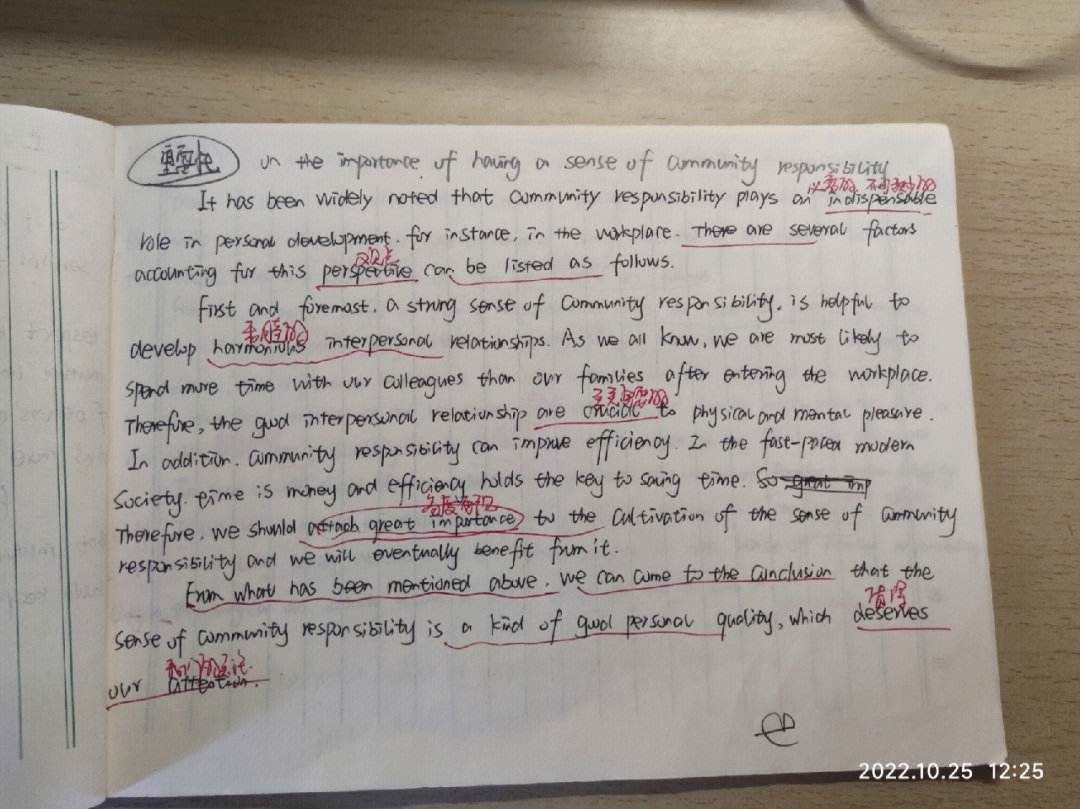 on the importance of having a sense of community responsibility
必要的, 不可或缺的
It has been widely noted that community responsibility plays an indispensable
role in personal development. for instance, in the workplace. There are several factors
观点
accounting for this perspective can be listed as follows.
First and foremost, a strong sense of community responsibility, is helpful to
和谐的
develop harmonious interpersonal relationships. As we all know, we are most likely to
spend more time with our colleagues than our families after entering the workplace.
至关重要的
Therefore, the good interpersonal relationship are crucial to physical and mental pleasure.
In addition, community responsibility can improve efficiency. In the fast-paced modern
society, time is money and efficiency holds the key to saving time. So great imp
Therefore, we should attach great importance to the cultivation of the sense of community
responsibility and we will eventually benefit from it.
From what has been mentioned above, we can come to the conclusion that the
值得
sense of community responsibility is a kind of good personal quality, which deserves
我们的关注.
our attention.
2022.10.25 12:25